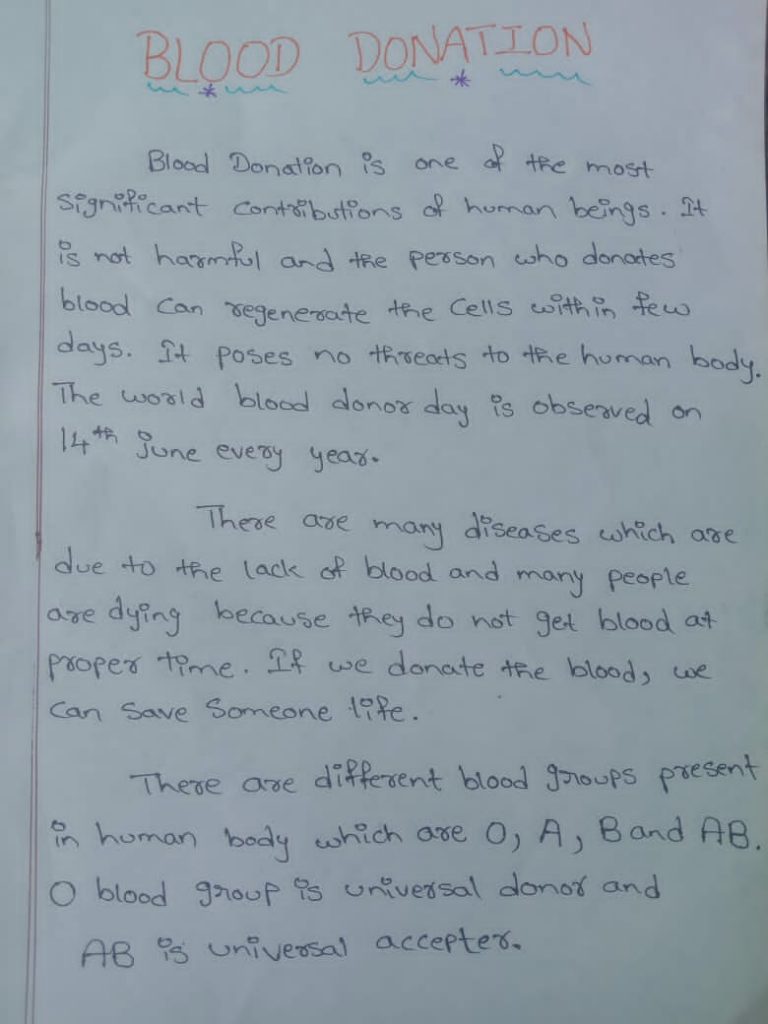 BLOOD DONATION
Blood Donation is one of the most
significant contributions of human beings. It
is not harmful and the person who donates
blood can regenerate the cells within few
days. It poses no threats to the human body.
The world blood donor day is observed on
14th june every year.
There are many diseases which are
due to the lack of blood and many people
are dying because they do not get blood at
proper time. If we donate the blood, we
can save someone life.
There are different blood groups present
in human body which are O, A, B and AB.
O blood group is universal donor and
AB is universal accepter.